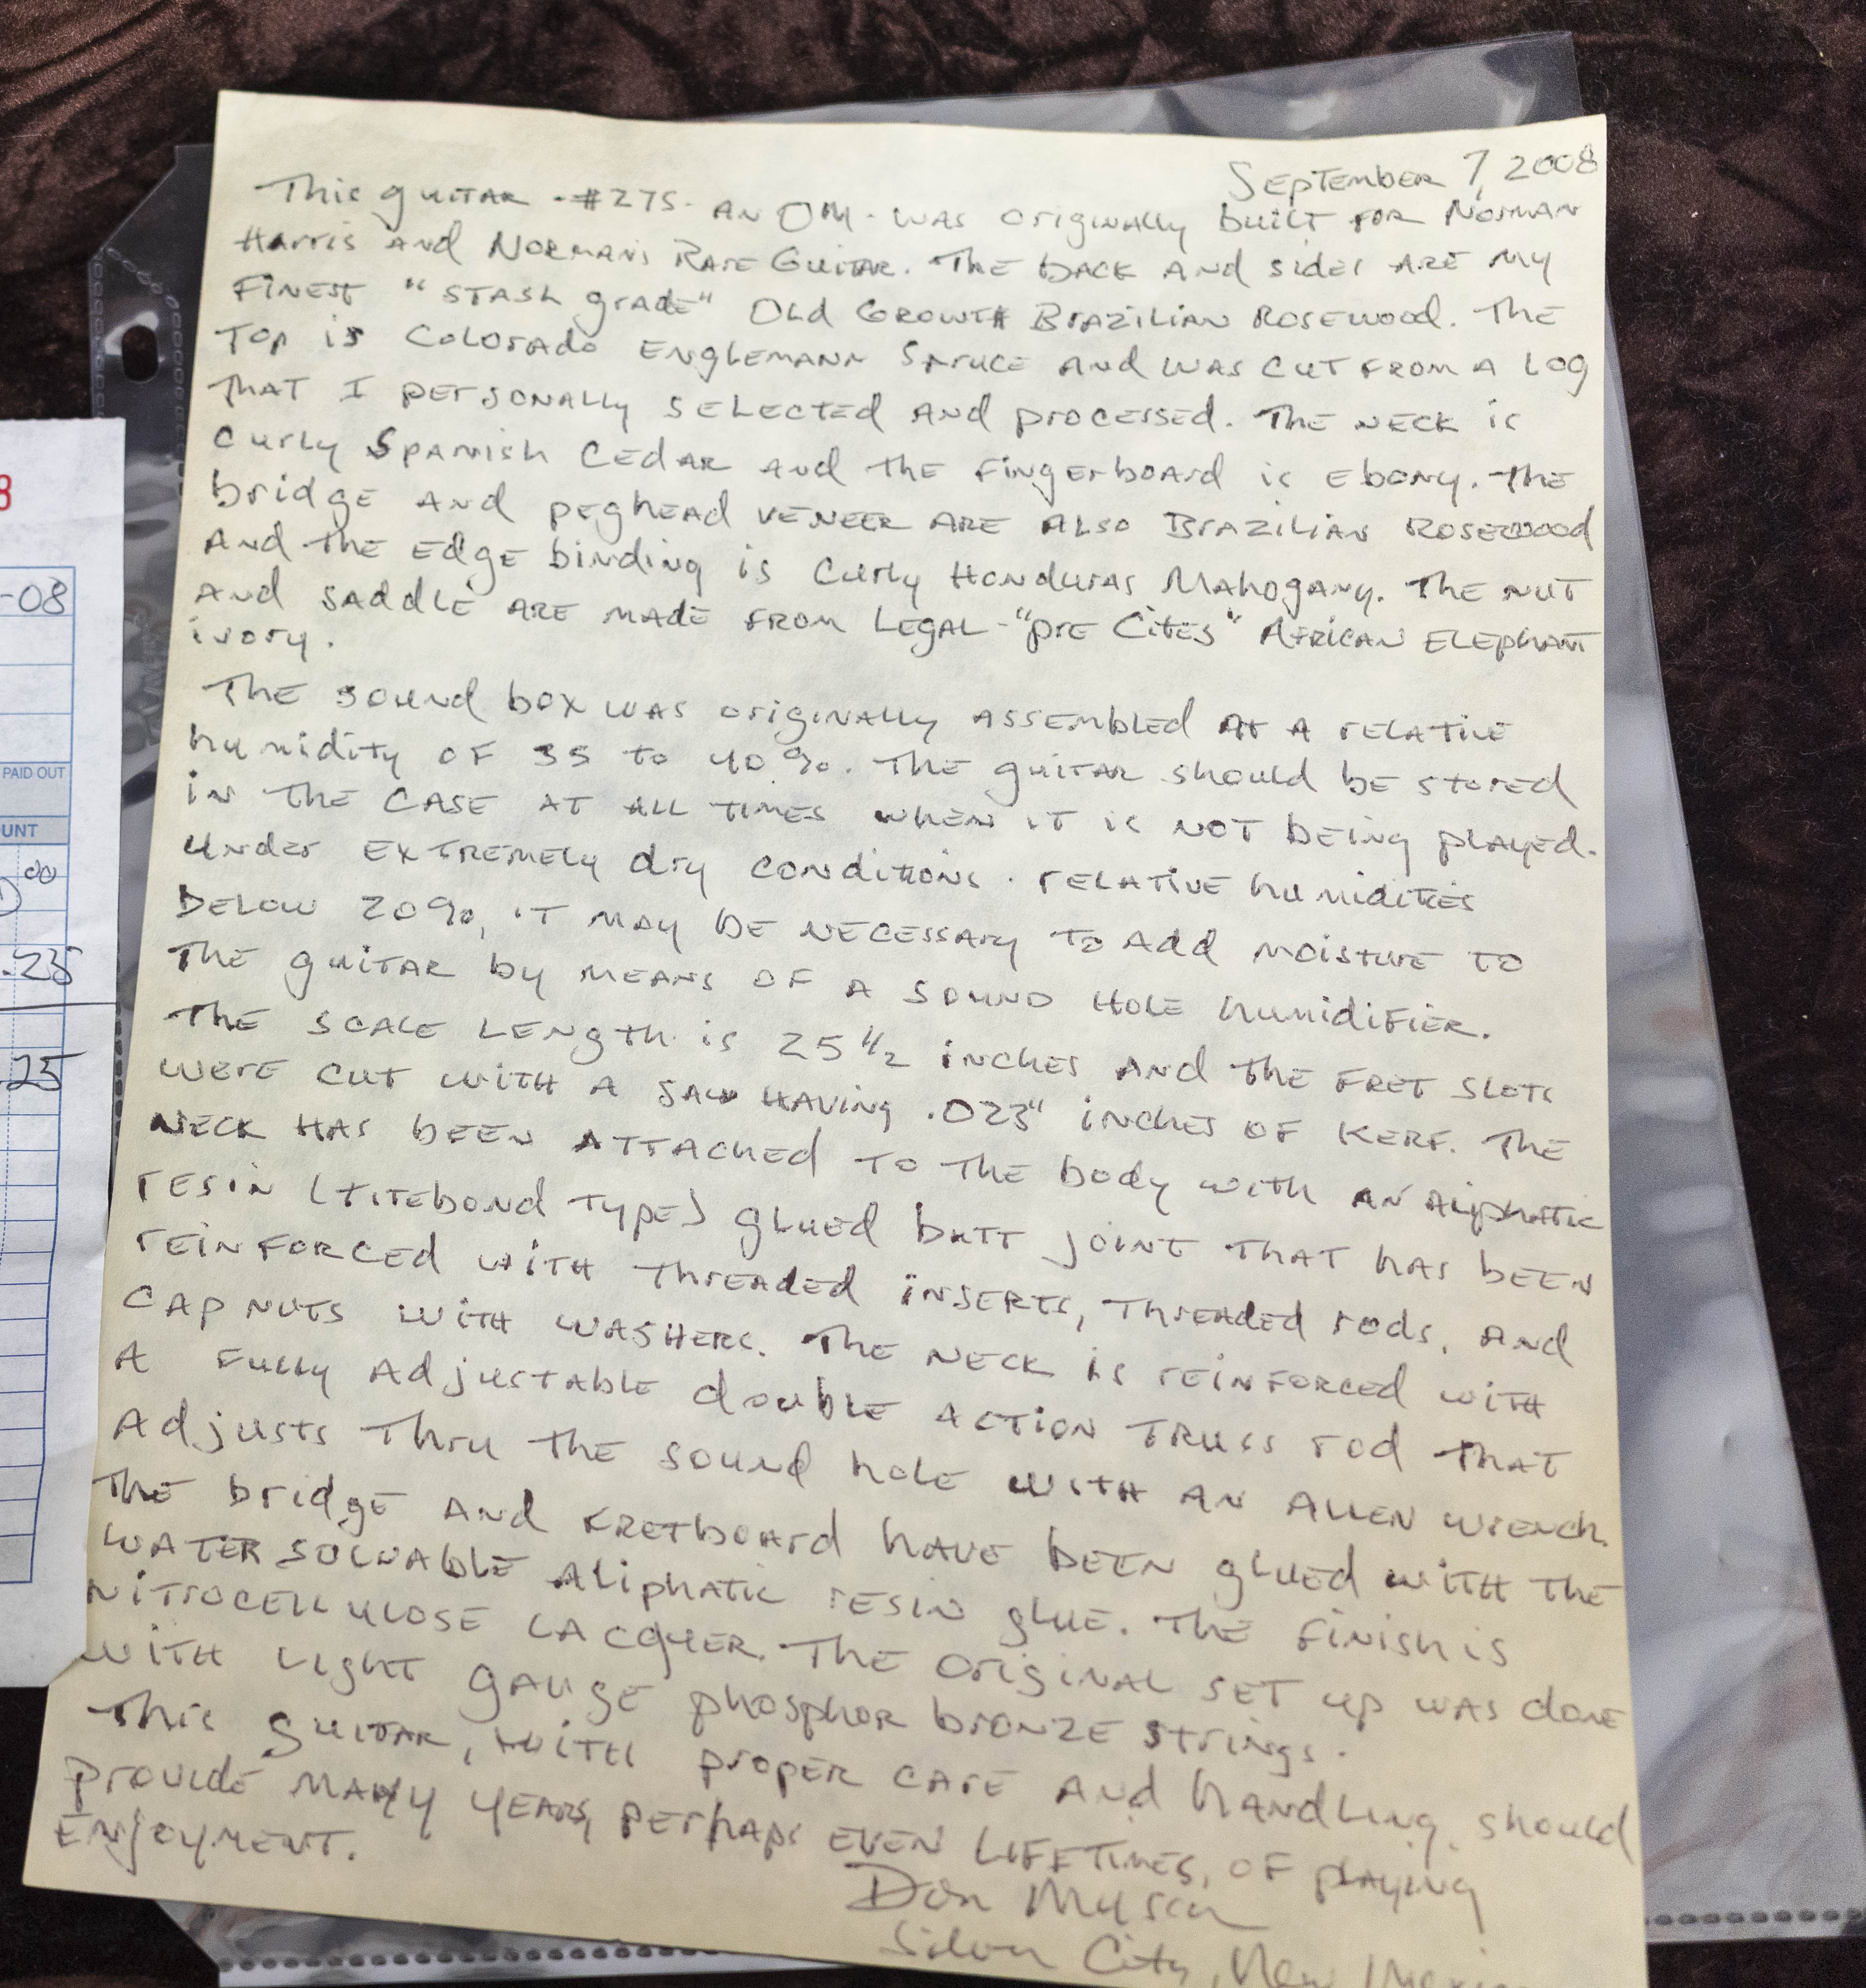 September 7, 2008
This guitar - #275 - AN OM - was originally built for Norman
Harris and Norman's Rare Guitar. The back and sides are my
finest "stash grade" Old Growth Brazilian Rosewood. The
top is Colorado Englemann Spruce and was cut from a log
that I personally selected and processed. The neck is
curly Spanish Cedar and the fingerboard is ebony. The
bridge and peghead veneer are also Brazilian Rosewood
and the edge binding is Curly Honduras Mahogany. The nut
and saddle are made from legal - "pre Cites" African Elephant
ivory.
The sound box was originally assembled at a relative
humidity of 35 to 40%. The guitar should be stored
in the case at all times when it is not being played.
Under extremely dry conditions - relative humidities
below 20%, it may be necessary to add moisture to
the guitar by means of a sound hole humidifier.
The scale length is 25 1/2 inches and the fret slots
were cut with a saw having .023" inches of kerf. The
neck has been attached to the body with an aliphatic
resin (titebond type) glued butt joint that has been
reinforced with threaded inserts, threaded rods, and
cap nuts with washers. The neck is reinforced with
a fully adjustable double action truss rod that
adjusts thru the sound hole with an allen wrench.
The bridge and fretboard have been glued with the
water soluable aliphatic resin glue. The finish is
nitrocellulose lacquer. The original set up was done
with light gauge phosphor bronze strings.
This guitar, with proper care and handling, should
provide many years, perhaps even lifetimes, of playing
enjoyment.
Don Musser
Silver City, New Mexico
8
-08
PAID OUT
UNT
00
.25
25